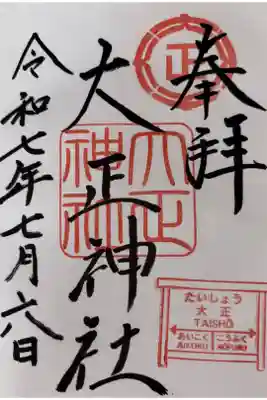 奉拝
正
大正神社
大正神社
令和七年七月六日
たいしょう
大正
TAISHŌ
あいこく こうふく
AIKOKU KŌFUKU